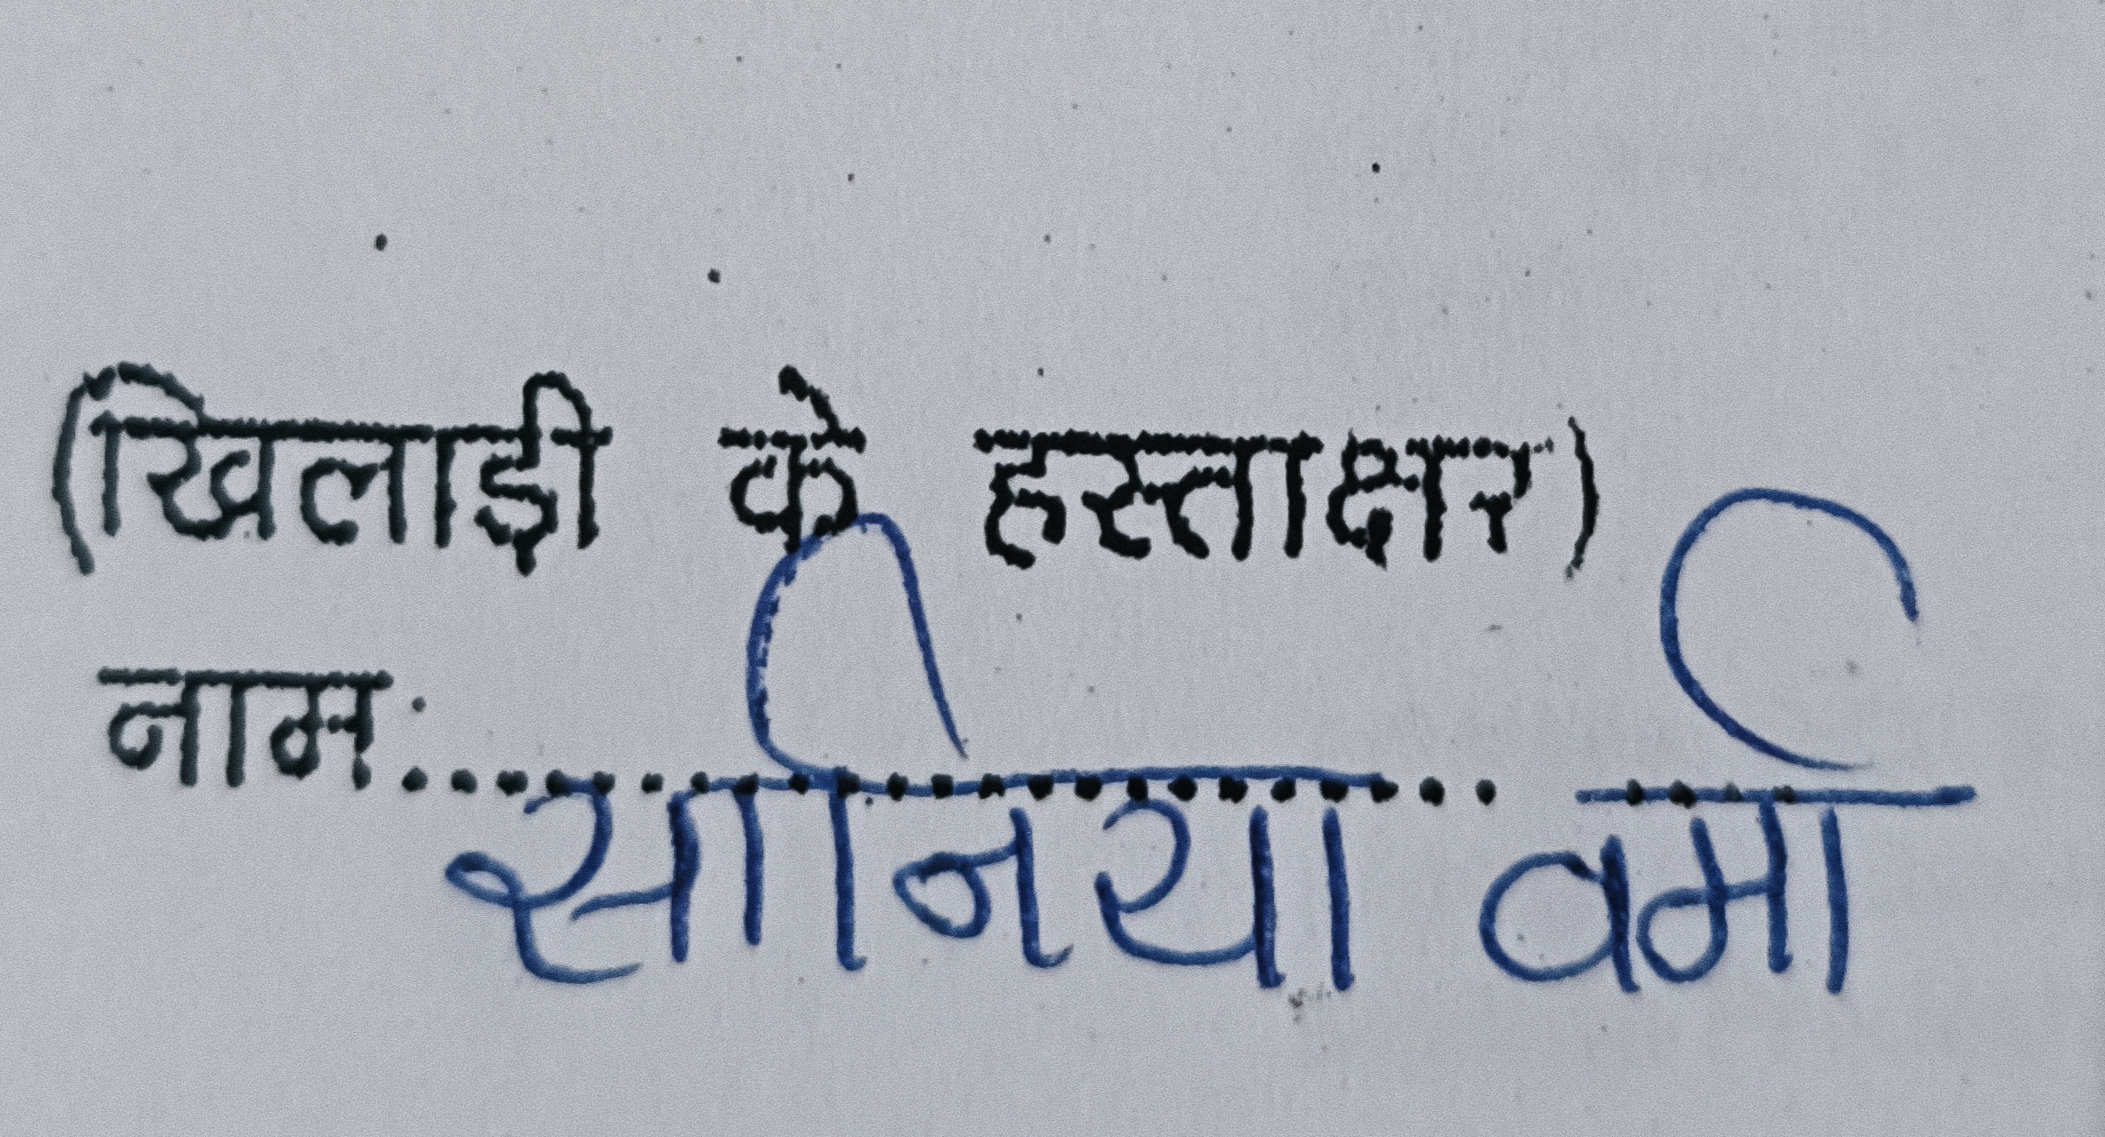 (खिलाड़ी के हस्ताक्षर)
नाम.............................. सानिया वर्मा